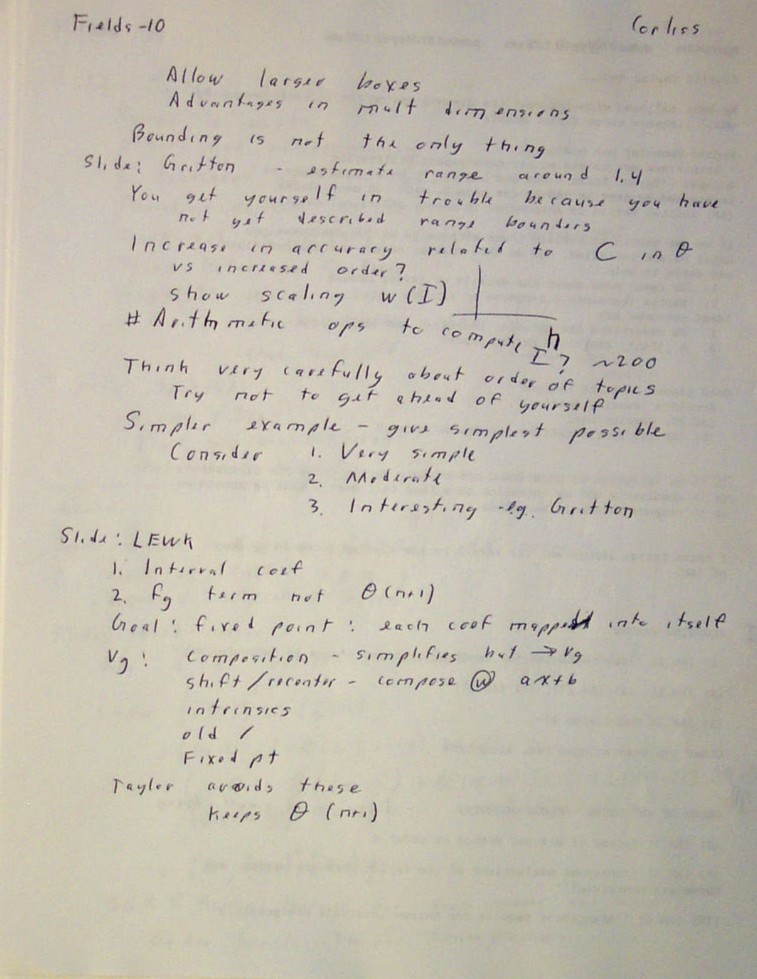 Fields-10 Corliss
Allow larger boxes
Advantages in mult dimensions
Bounding is not the only thing
Slide: Gritton - estimate range around 1.4
You get yourself in trouble because you have
not yet described range bounders
Increase in accuracy related to C in θ
vs increased order?
show scaling w(I)
h
# Arithmetic ops to compute I? ~200
Think very carefully about order of topics
Try not to get ahead of yourself
Simpler example - give simplest possible
Consider 1. Very simple
2. Moderate
3. Interesting -eg. Gritton
Slide: LEWK
1. Interval coef
2. fg term not θ(n+1)
Goal: fixed point: each coef mapped into itself
Vg: composition - simplifies but → Vg
shift/recenter - compose @ ax+b
intrinsics
old /
Fixed pt
Taylor avoids these
keeps θ (n+1)